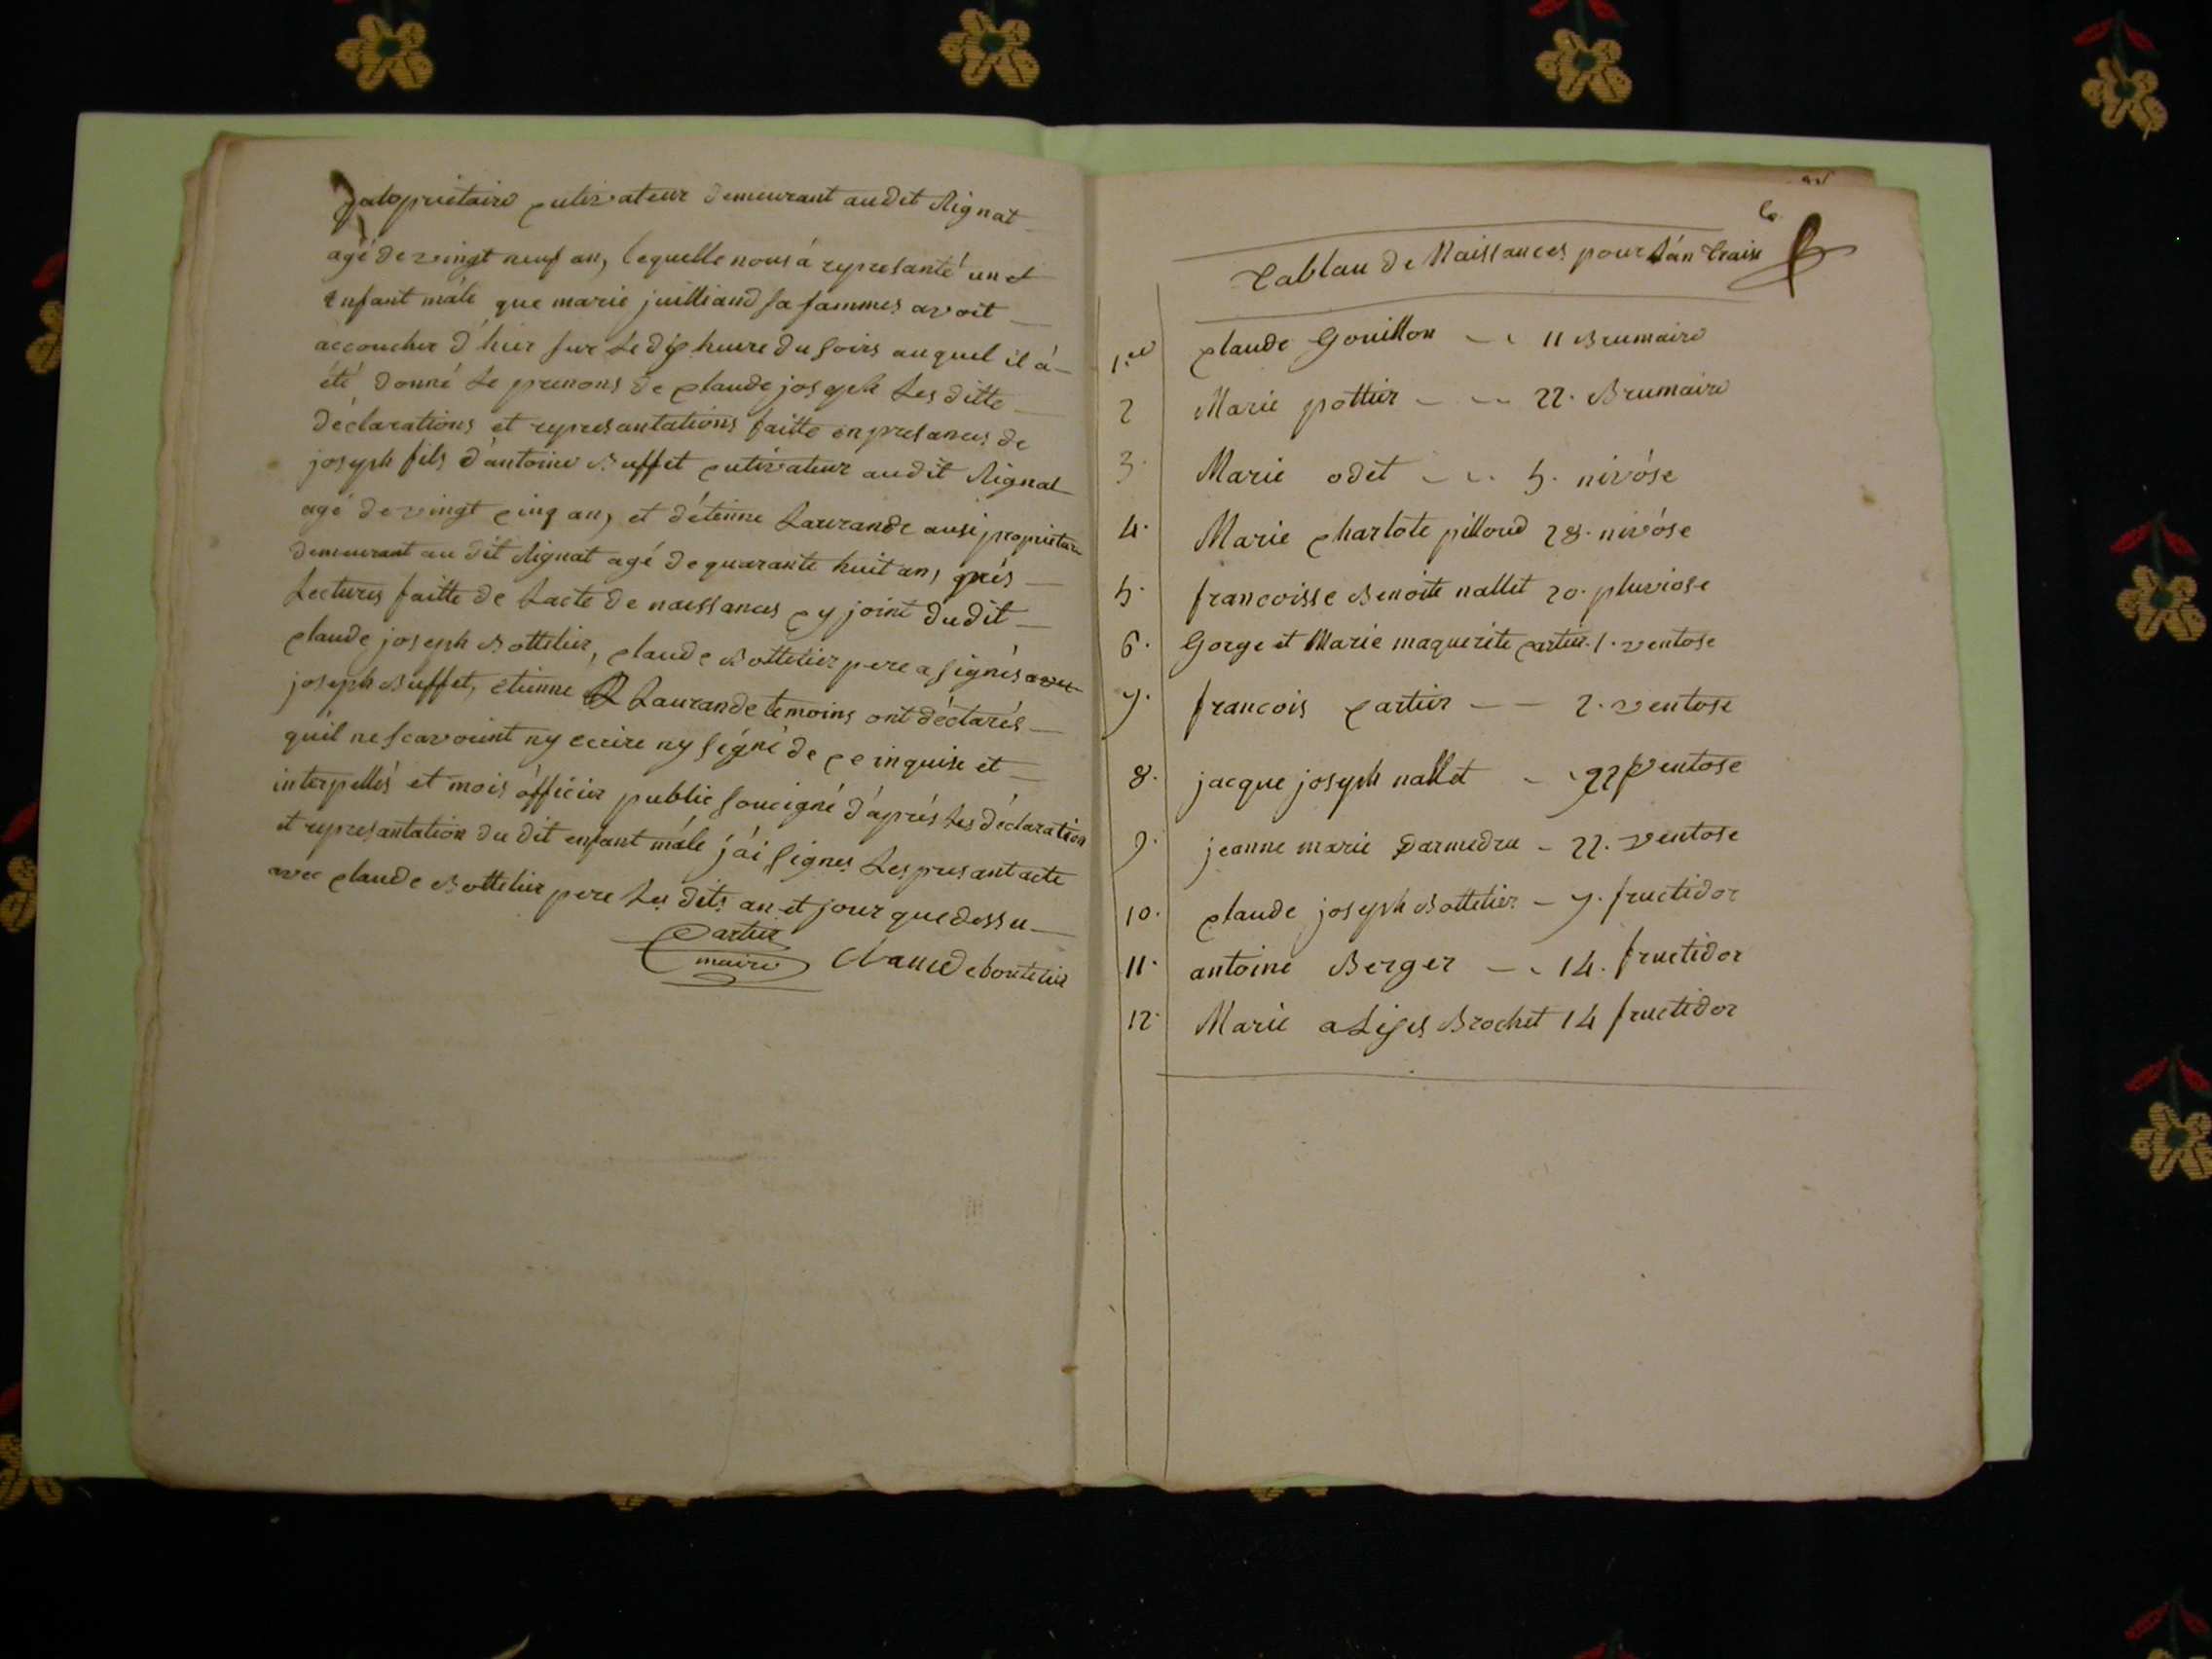 propriétaire cutivateur demeurant audit Rignat
agé de vingt neuf an, lequelle nous á represanté un et
enfant mále que marie juilliand sa fammes avoit
accoucher d'hier sur le dix heure du soirs auquel il á
été donné le prenons de claude joseph les ditte
déclarations et represantations faitte en presances de
joseph fils d'antoine Buffet cutivateur au dit Rignat
agé de vingt cinq an, et d'étienne Laurande ausi propriétaire
demeurant au dit Rignat agé de quarante huit an,
Lectures faitte de Lacte de naissances cy joint dudit
claude joseph Bottelier, claude Bottelier pere a signés avec
joseph Buffet, etienne Laurande temoins ont déclarés
quil ne scavoient ny ecrire ny signé de ce inquise et
interpellés et mois officier public soucigné d'aprés les déclaration
et represantation du dit enfant mále j'ái signes Les presant acte
avec claude Bottelier pere Les dits an et jour que dessu
Cartier
maire Claude boutelier
Tablau de Naissances pour L'án traise
1.er claude Gouillon 11 Brumaire
2 Marie pottier 22. Brumaire
3. Marie odet 5. nivóse
4. Marie charlote pilloud 28. nivóse
5. francoisse Benoite nallet 20. pluviose
6. Gorge et Marie maquerite cartier. 1. ventose
7. francois cartier 2. ventose
8. jacque joseph nallet 22 Ventose
9. jeanne marie Darmedru 22. ventose
10. claude joseph Bottelier 7. fructidor
11. antoine Berger 14. fructidor
12. Marie Brochet 14 fructidor